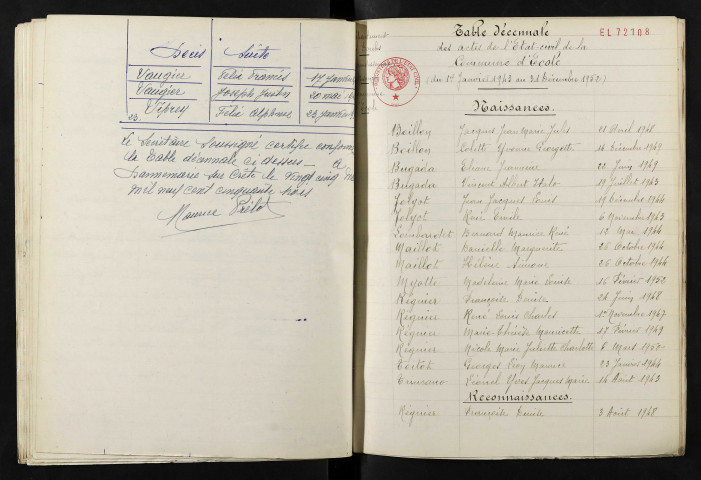 Décès Suite
Vaugier Félix Francis 17 Janvier
Vaugier Joseph Justin 20 mai
23. Viprey Félix Alphonse 23 janvier
Le Secrétaire soussigné certifie conforme
la Table décennale ci dessus - A
Dannemarie sur Crète le vingt cinq
mil neuf cent cinquante trois
Maurice
Table décennale
EL 72108
des actes de l'Etat-civil de la
Commune d'Ecole
(du 1er Janvier 1943 au 31 Décembre 1952)
Naissances.
Boillon Jacques Jean Marie Jules 21 Avril 1948
Boillon Colette Yvonne Georgette 16 Décembre 1949
Brigada Eliane Jeannine 22 Juin 1949
Brigada Vincent Albert Italo 19 Juillet 1943
Jolyot Jean Jacques Louis 17 Décembre 1944
Jolyot René Emile 6 Novembre 1943
Bernard Maurice René 10 Mai 1944
Maillot Danielle Marguerite 26 Octobre 1944
Maillot Hélène Simone 26 Octobre 1944
Myotte Madeleine Marie Louise 15 Février 1952
Régnier Françoise Louise 24 Juin 1948
Régnier René Louis Charles 1er Novembre 1947
Régnier Marie Thérèse Mauricette 17 Février 1949
Régnier Nicole Marie Juliette Charlotte 8 Mars 1950
Toitot Georges Léon Maurice 23 Janvier 1944
Lionel Yves Jacques Marie 14 Août 1943
Reconnaissances.
Régnier Françoise Louise 3 Août 1948